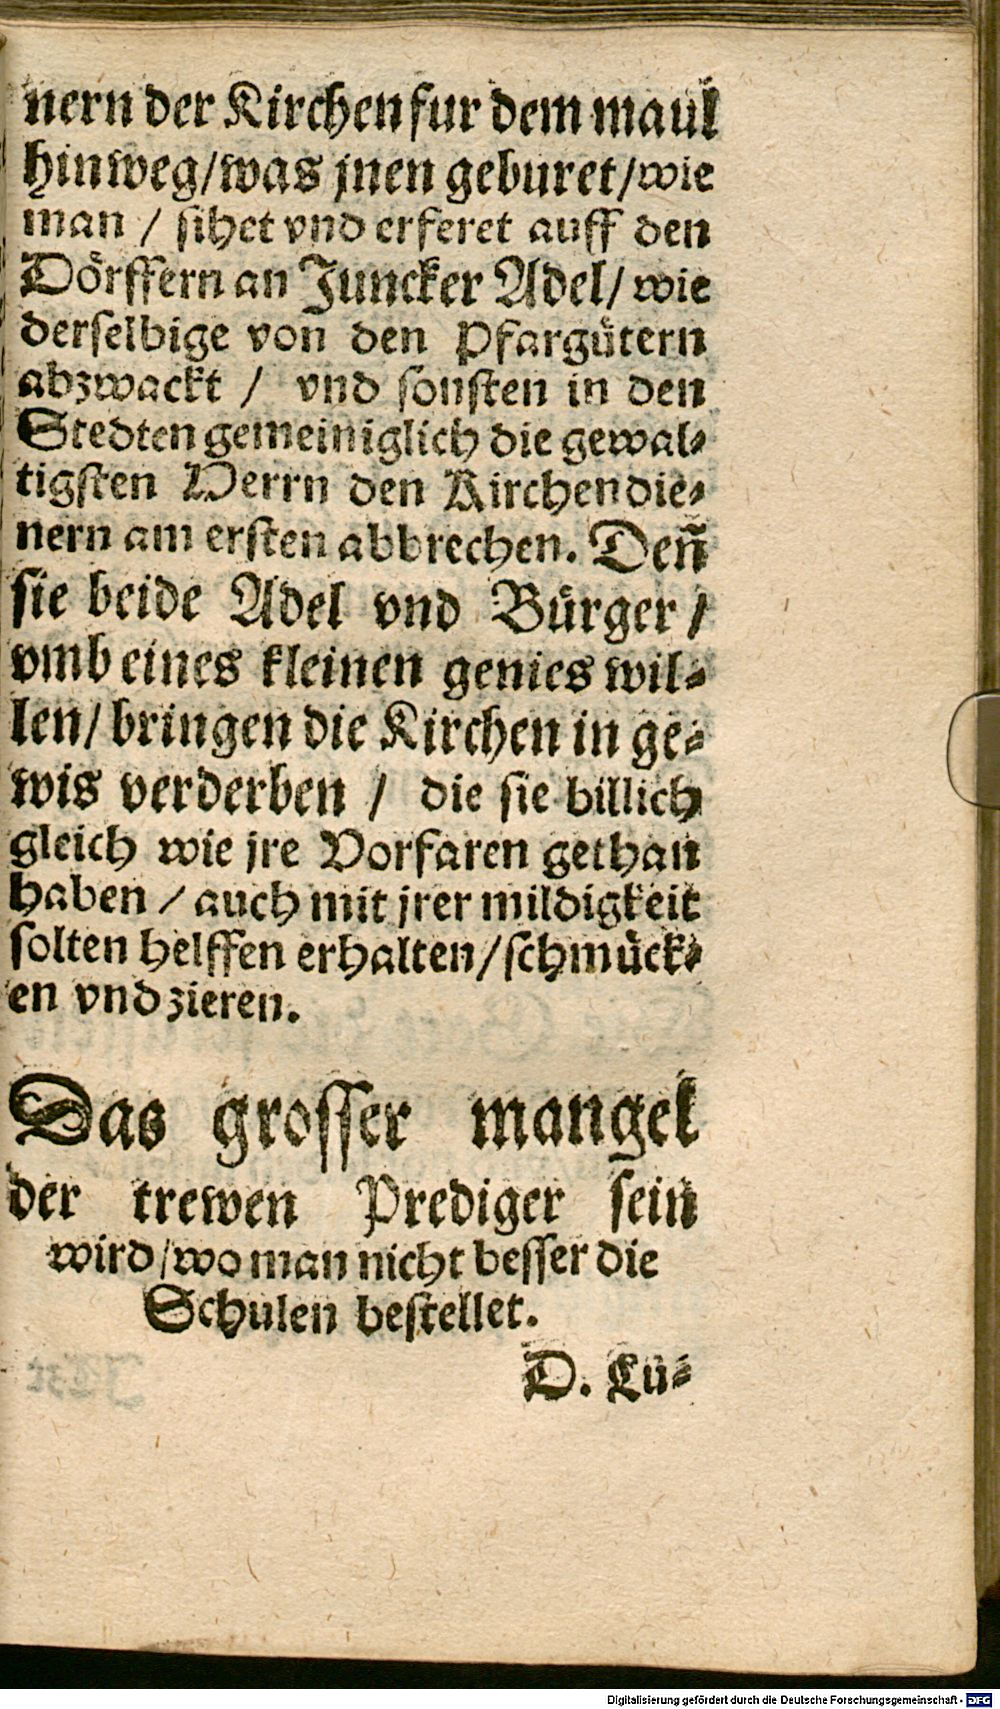 nern der Kirchen fur dem maul
hinweg/was jnen geburet/wie
man / sihet vnd erferet auff den
Dörffern an Juncker Adel/ wie
derselbige von den Pfargütern
abzwackt / vnd sonsten in den
Stedten gemeiniglich die gewal⸗
tigsten Herrn den Kirchendie⸗
nern am ersten abbrechen. Deñ
sie beide Adel vnd Bürger /
vmb eines kleinen genies wil⸗
len/ bringen die Kirchen in ge⸗
wis verderben / die sie billich
gleich wie jre Vorfaren gethan
haben / auch mit jrer mildigkeit
solten helffen erhalten/schmück⸗
en vnd zieren.
Das grosser mangel
der trewen Prediger sein
wird/wo man nicht besser die
Schulen bestellet.
D. Lu⸗
Digitalisierung gefördert durch die Deutsche Forschungsgemeinschaft - DFG